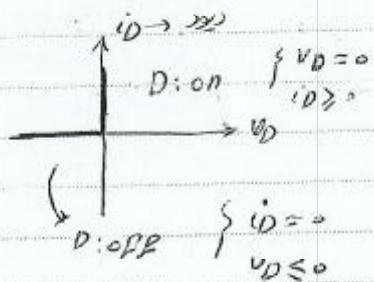 i_D →
D: on
{ v_D = 0
i_D ≥ 0
v_D
D: off
{ i_D = 0
v_D ≤ 0